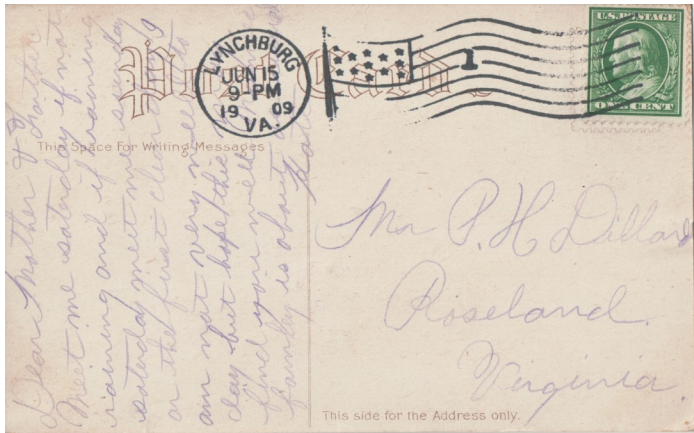 Post Card
LYNCHBURG
JUN 15
9 PM
19 09
VA.
1
U.S. POSTAGE
ONE CENT
This Space For Writing Messages
Dear Mother & Father
Meet me saterday if not
raining and if training
saterday meet me sunday
or the first clear
am not very well to
day but hope this
find you well
family is about
Mr P. H Dillard
Roseland
Virginia.
This side for the Address only.